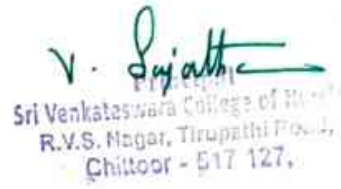 V. Sujatha
Principal
Sri Venkateswara College of
R.V.S. Nagar, Tirupathi Road,
Chittoor - 517 127.